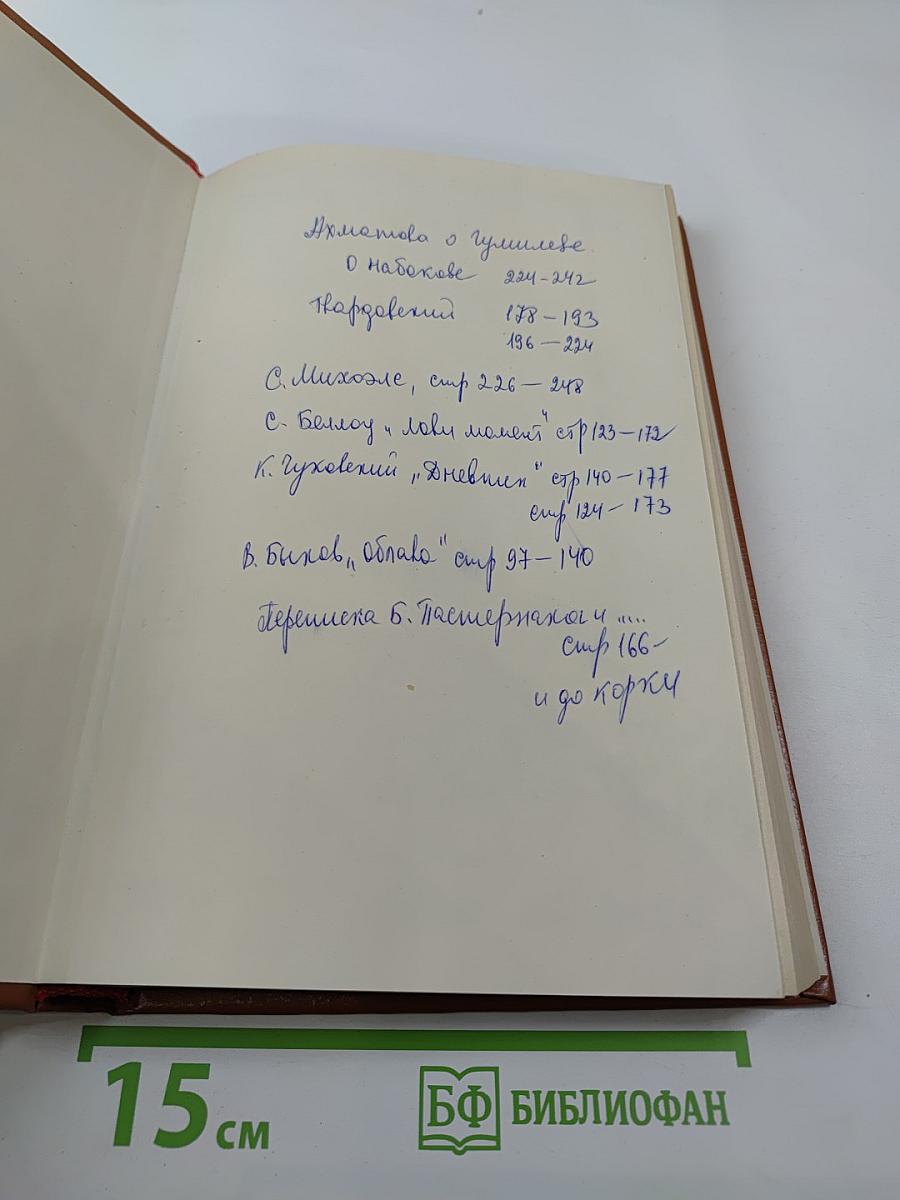 Ахматова о Гумилеве
О Набокове 224-242
Твардовский 178-193
196-224
С. Михоэлс, стр 226-248
С. Беллоу "Лови момент" стр 123-172
К. Чуковский "Дневник" стр 140-177
стр 124-173
В. Быков "Облава" стр 97-140
Переписка Б. Пастернака и .....
стр 166-
и до корки
15 см
БФ БИБЛИОФАН